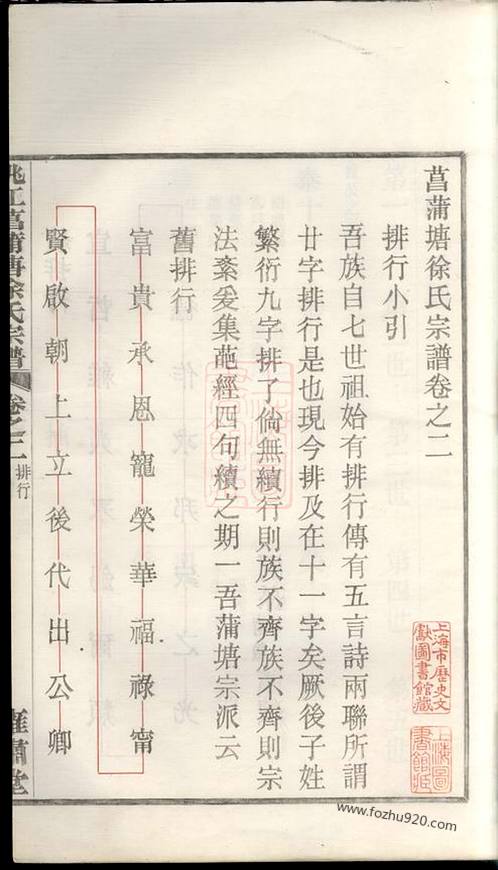 菖蒲塘徐氏宗譜卷之二
排行小引
吾族自七世祖始有排行傳有五言詩兩聯所謂
廿字排行是也現今排及在十一字矣厥後子姓
繁衍九字排了倘無續行則族不齊族不齊則宗
法紊爰集葩經四句續之期一吾蒲塘宗派云
舊排行
富貴承恩寵榮華福祿甯
賢啟朝上立後代出公卿
姚江菖蒲塘徐氏宗譜 卷之二 排行 雍肅堂
上海市歷史文獻圖書館藏
上海圖書館藏
www.fozhu920.com